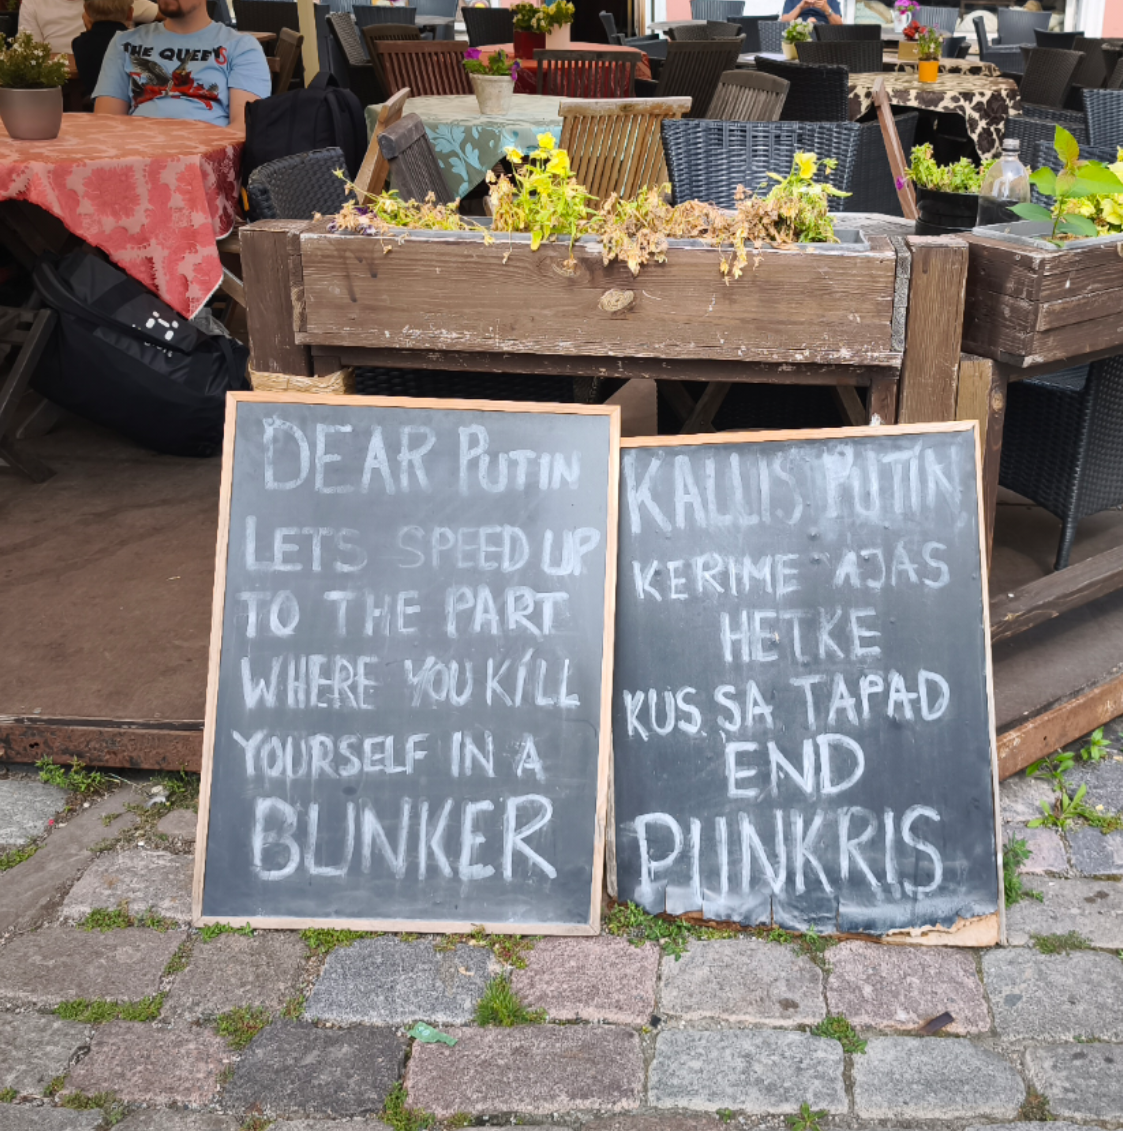 THE QUEE'S
DEAR PUTIN
LETS SPEED UP
TO THE PART
WHERE YOU KILL
YOURSELF IN A
BUNKER
KALLIS PUTIN,
KERIME AJAS
HETKE
KUS SA TAPAD
END
PUNKRIS